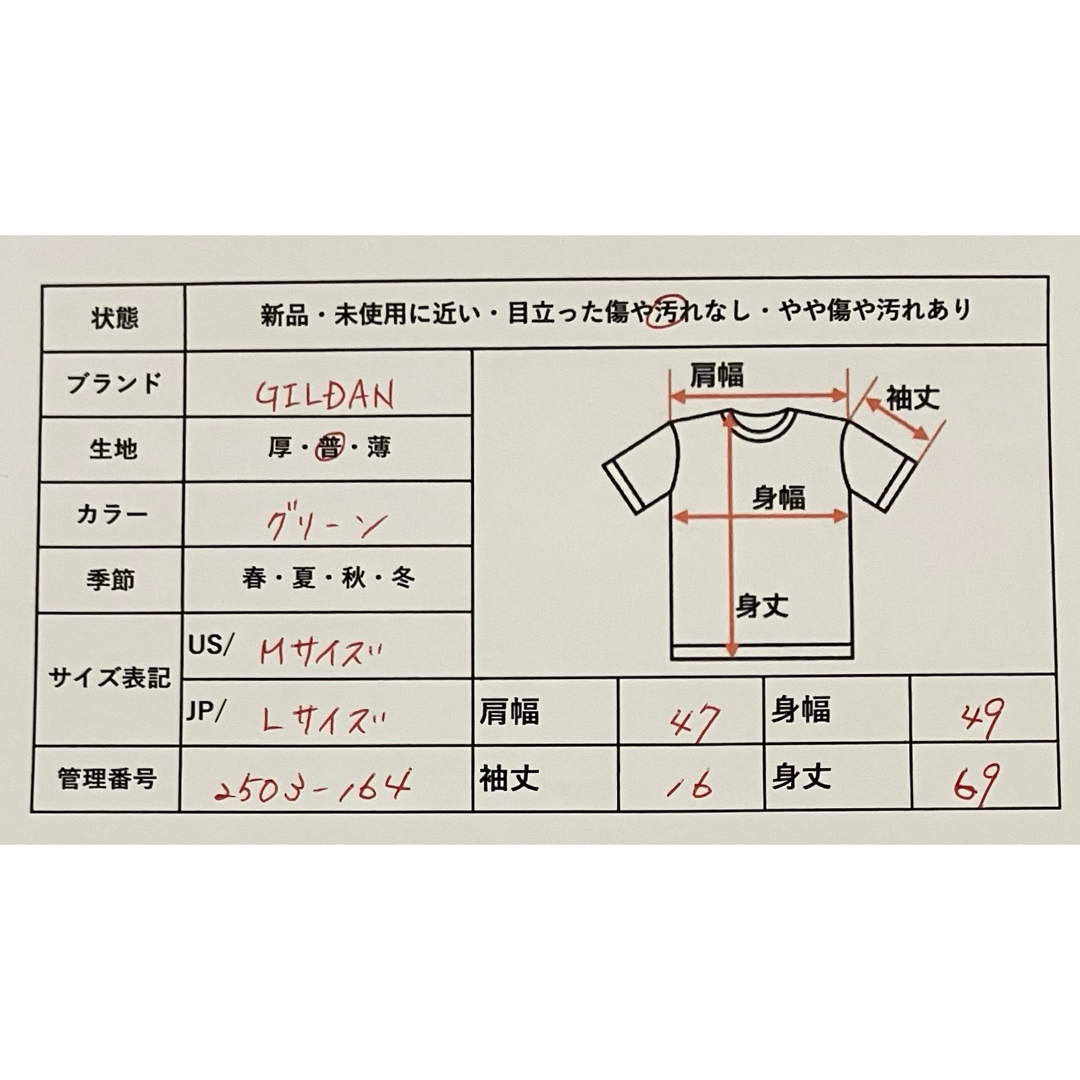 状態 新品・未使用に近い・目立った傷や汚れなし・やや傷や汚れあり
ブランド GILDAN
肩幅
袖丈
生地 厚・普・薄
カラー グリーン
身幅
季節 春・夏・秋・冬
身丈
サイズ表記
US/ Mサイズ
JP/ Lサイズ
肩幅 47 身幅 49
管理番号 2503-164 袖丈 16 身丈 69